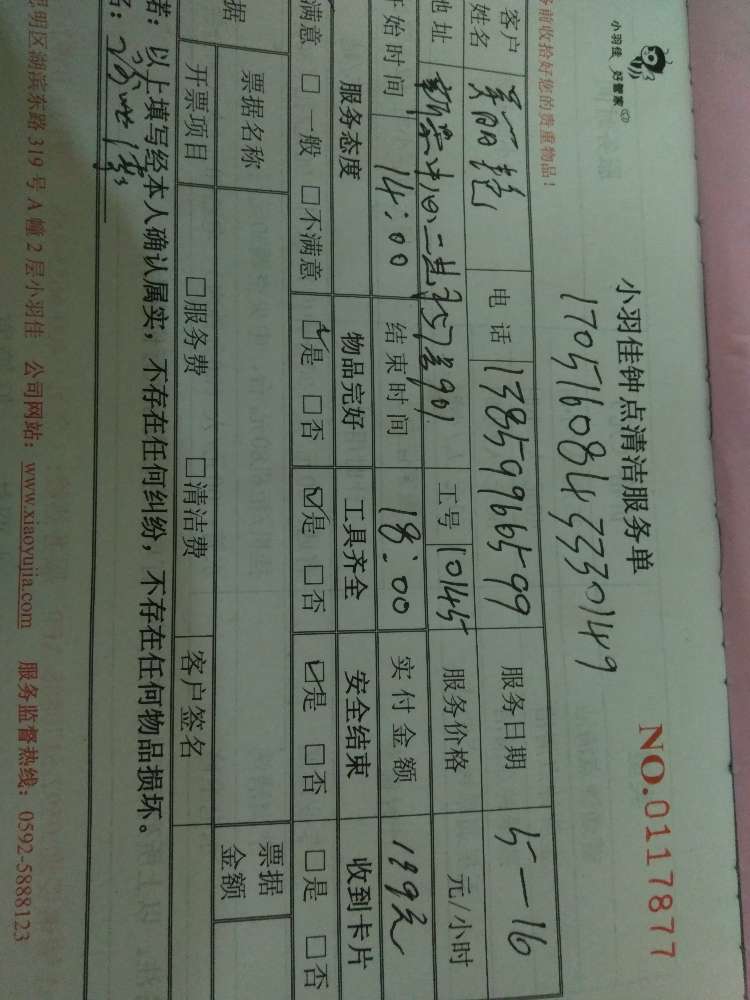 小羽佳 好管家
小羽佳钟点清洁服务单
NO.0117877
17051608433330149
前收拾好您的贵重物品！
客户姓名 电话 13859966599 服务日期 5—16
地址 工号 10145 服务价格 元/小时
开始时间 14:00 结束时间 18:00 实付金额 199元
服务态度 物品完好 工具齐全 安全结束 收到卡片
满意 □一般 □不满意 ☑是 □否 ☑是 □否 ☑是 □否 □是 □否
据 票据名称 票据金额
开票项目 □服务费 □清洁费 客户签名
者：以上填写经本人确认属实，不存在任何纠纷，不存在任何物品损坏。
名：
思明区湖滨东路319号A幢2层小羽佳 公司网站：www.xiaoyujia.com 服务监督热线：0592-5888123